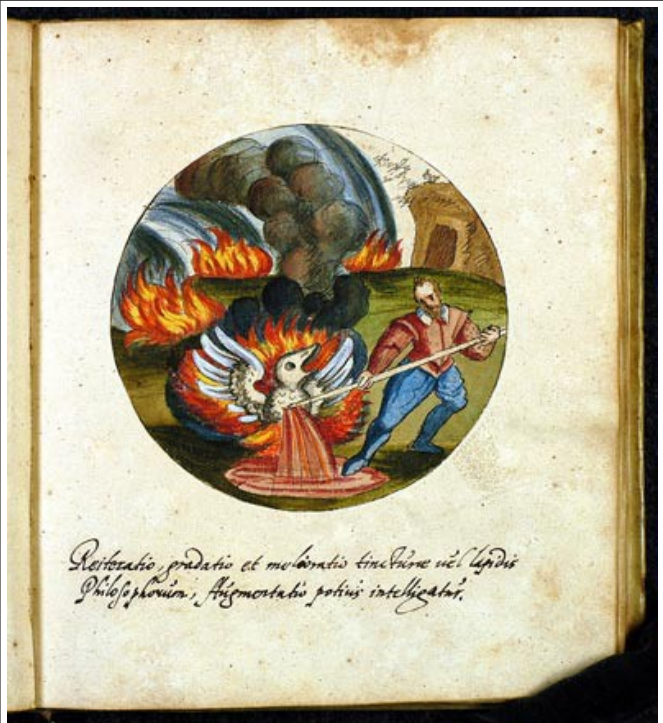 Reiteratio, gradatio et melioratio tincturæ uel lapidis
Philosophorum, Augmentatio potius intelligatur.